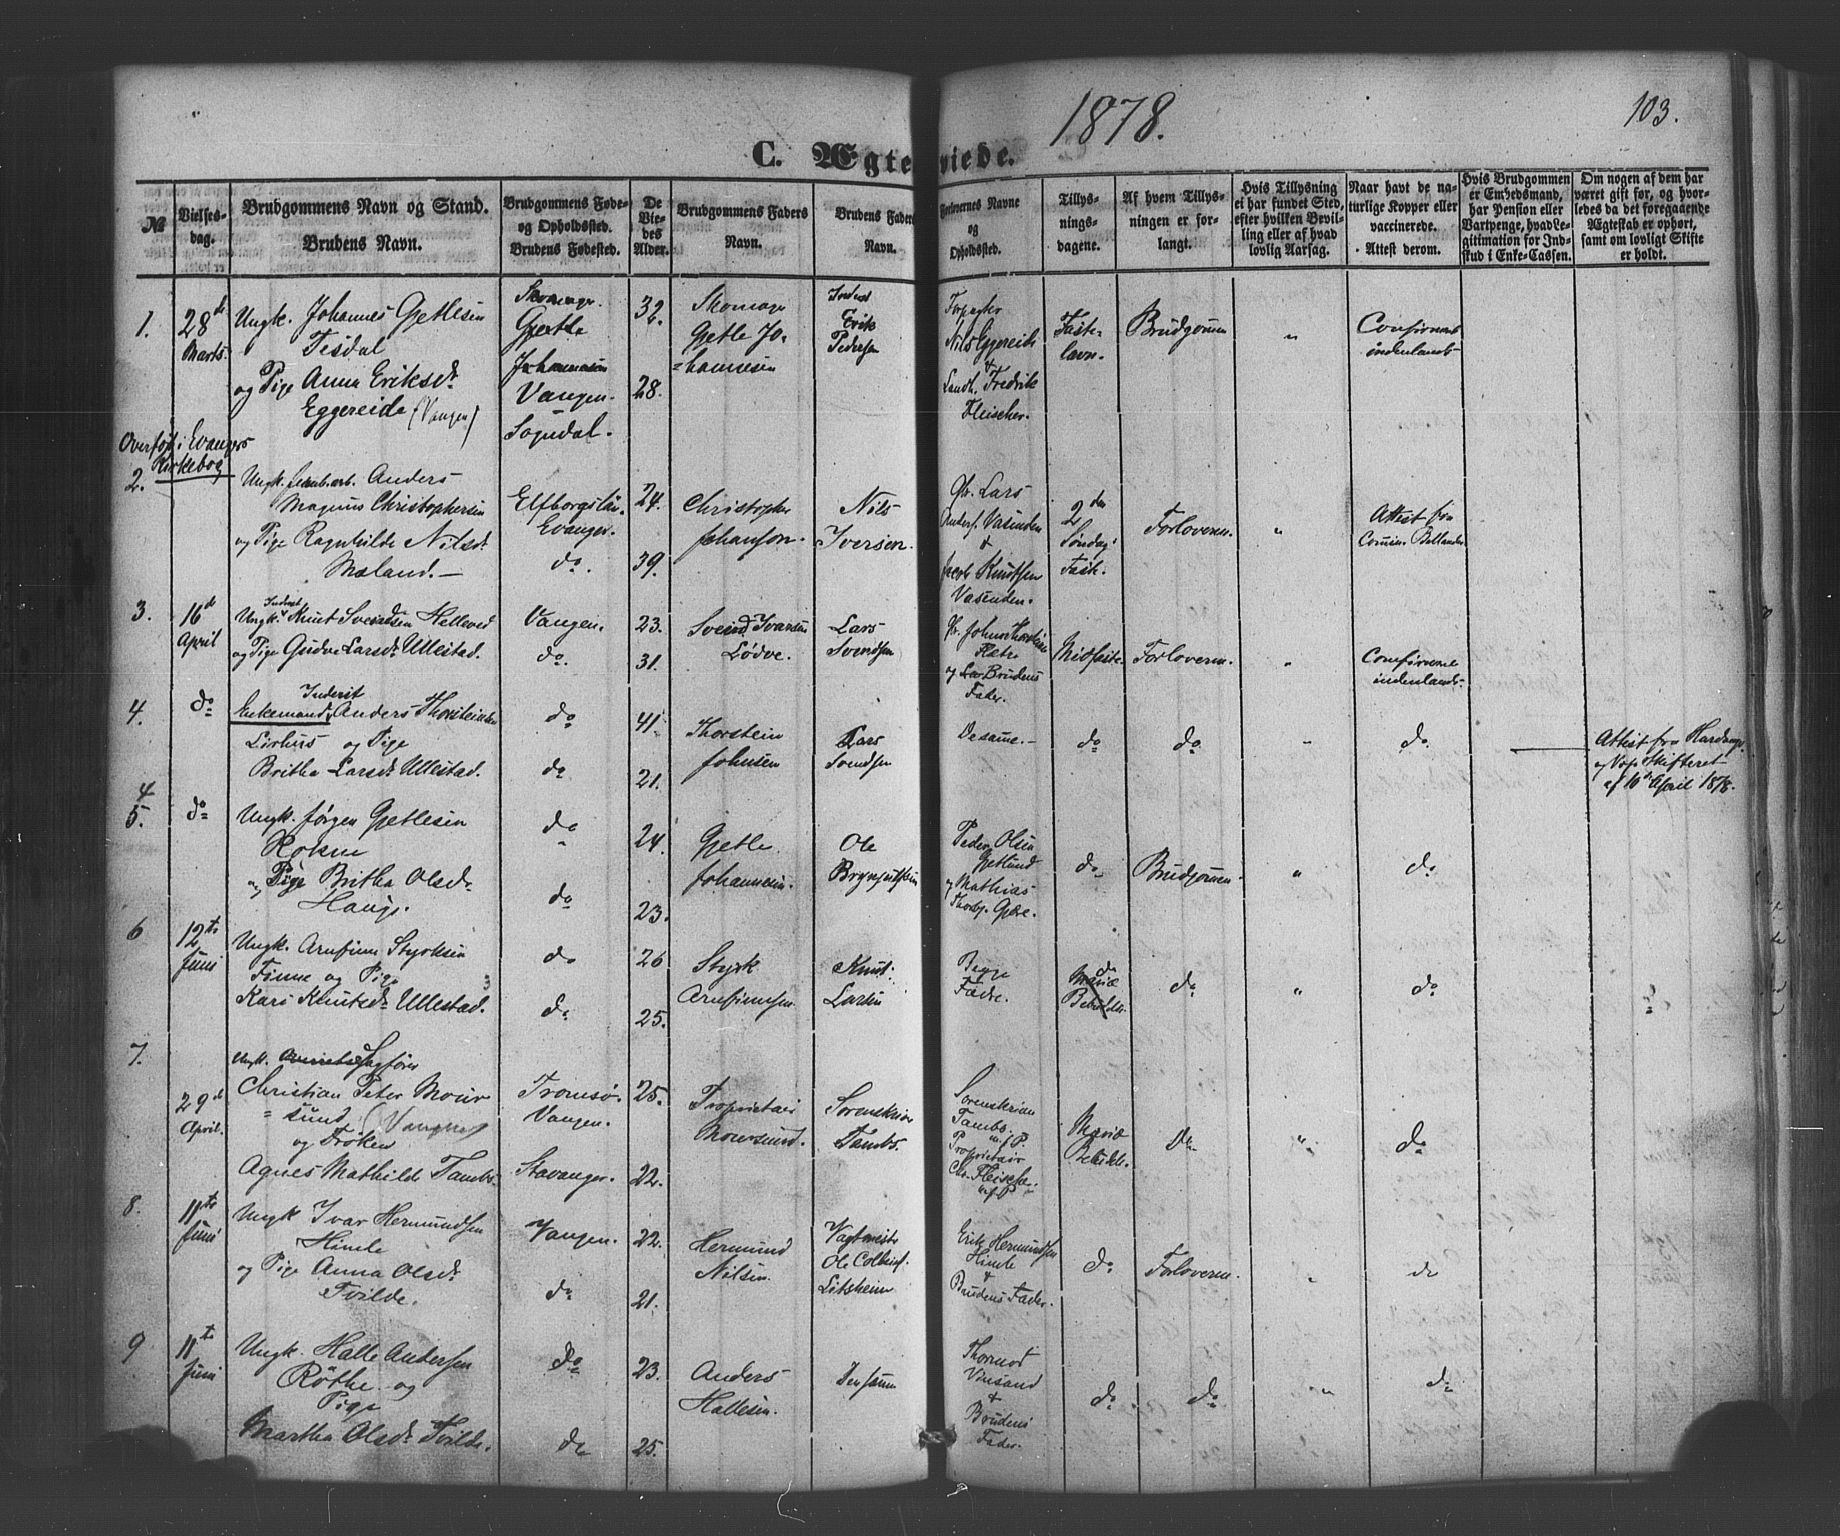 1878.
103.
C. Ægte viede.
№
Vielses-
dag.
Brudgommens Navn og Stand.
Brudens Navn.
Brudgommens Føde-
og Opholdssted.
Brudens Fødested.
De
Vie-
des
Alder.
Brudgommens Faders
Navn.
Brudens Faders
Navn.
Forlovernes Navne
og
Opholdssted.
Tillys-
nings-
dagene.
Af hvem Tillys-
ningen er for-
langt.
Hvis Tillysning
ei har fundet Sted,
efter hvilken Bevil-
ling eller af hvad
lovlig Aarsag.
Naar havt de na-
turlige Kopper eller
vaccinerede.
Attest derom.
Hvis Brudgommen
er Enkedsmand,
har Pension eller
Vartpenge, hvad Le-
gitimation for Ind-
skud i Enke-Cassen.
Om nogen af dem har
været gift før, og hvor-
ledes da det foregaaende
Ægteskab er ophørt,
samt om lovligt Skifte
er holdt.
1.
28de
Marts.
Ungk. Johannes Gjetlesen
Tesdal
og Pige Anna Eriksdr
Eggereide (Vangen)
Gjetle
Johannesen
Vangen.
Sogndal.
32.
28.
Gjetle Jo-
=hannesen
Inderst
Erik
Pedersen
Nils Eggereide
&
Landh. Fredrik
Fleischer.
Faste-
lavn.
Brudgommen
"
Confirmeret
indenlands
Overført i Evangers
Kirkebog
2.
Ungk. Anders
Magnus Christophersen
og Pige Ragnhilde Nilsdr
Mæland.
Elfborgslän.
Evanger.
do.
24.
39.
Christopher
Johanson.
Nils
Iversen.
Gb. Lars
Anders. Vasenden
&
Jacob Knudsen
Vasenden.
2den
Søndag i
Fast.
Forloveren.
"
Attest fra
3.
16d
April
Inderst
Ungk. Knut Svendsen Helleved
og Pige Gudve Larsdr Ullestad.
Vangen.
do.
23.
31.
Svend Ivarsen
Lødve.
Lars
Svendsen
og Brudens
Fader.
Midfaste.
Forloveren.
"
Confirmerne
indenlands.
4.
do
Inderst
Enkemand Anders Thorsteinsen
Lirhus og Pige
Britha Larsdr Ullestad.
do
do
41.
21.
Thorstein
Johnsen
Lars
Svendsen
De samme.
do
do.
"
do.
Attest fra Hardanger
og Voss Skifteret
af 10de April 1878.
4
5.
do
Ungk. Jørgen Gjetlesen
Rokne
og Pige Britha Olsdr
Haugo.
do
do
24.
23.
Gjetle
Johannesen.
Ole
Brynjulfsen
Peder Olsen
Gjetlund
og Mathias
Gjære.
do
Brudgommen.
"
do.
6
12te
Juni
Ungk. Arnfinn Styrksen
Finne og Pige
Kari Knutsdr Ullestad.
do
do.
26
25.
Styrk
Arnfinnsen.
Knut
Larsen
Begge
Fædre.
do
Mariæ
Bebudelse.
do.
"
do.
7.
29d
April.
Ungk. Sagfører
Christian Peter Mour-
=sund (Vangen)
og Frøken
Agnes Mathilde Tambs
Tromsø.
Vangen.
Stavanger.
25.
22.
Proprietair
Moursund.
Sorenskriver
Tambs.
Sorenskriver
Tambs.
Proprietair
Chr. Fleischer.
Mariæ
Bebudelse.
Do
"
do.
8.
11te
Juni
Ungk Ivar Hermundsen
Himle
og Pige Anna Olsdr
Tvilde.
Vangen.
do
22.
21.
Hermund
Nilsen.
Vagtmester
Ole Colbens.
Litsheim
Erik Hermundsen
Himle
&
Brudens Fader.
do
Forloveren.
"
do
9
11te
Juni
Ungk. Halle Andersen
Röthe og
Pige
Martha Olsdr Tvilde.
do
do
23.
25.
Anders
Hallesen.
Den samme
Thormod
Vinsand
&
Brudens
Fader.
do
do.
"
do